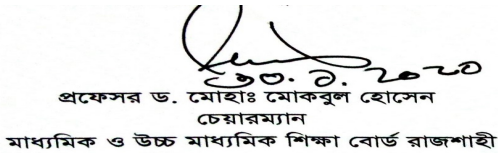 ৩০.১.২০২০
প্রফেসর ড. মোহাঃ মোকবুল হোসেন
চেয়ারম্যান
মাধ্যমিক ও উচ্চ মাধ্যমিক শিক্ষা বোর্ড রাজশাহী